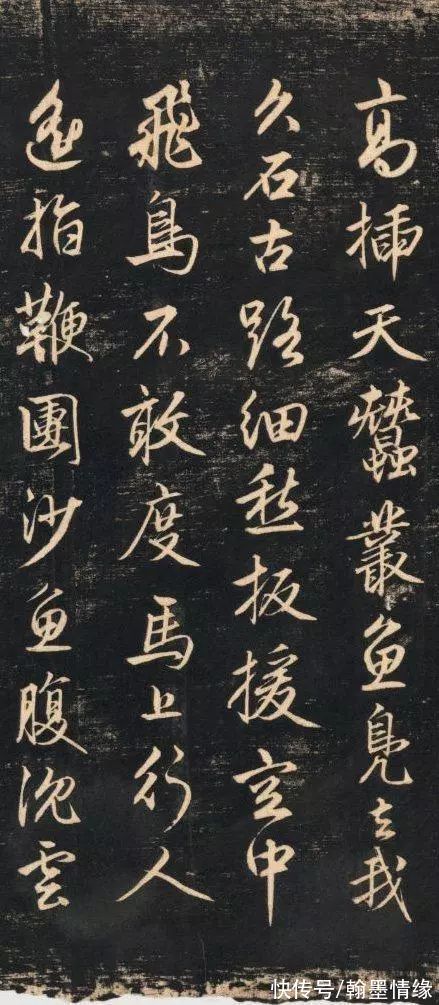 高插天蠶叢魚鳧去我
久石古路細愁扳援空中
飛鳥不敢度馬上行人
遙指鞭團沙魚腹沉雲
快传号/翰墨情缘